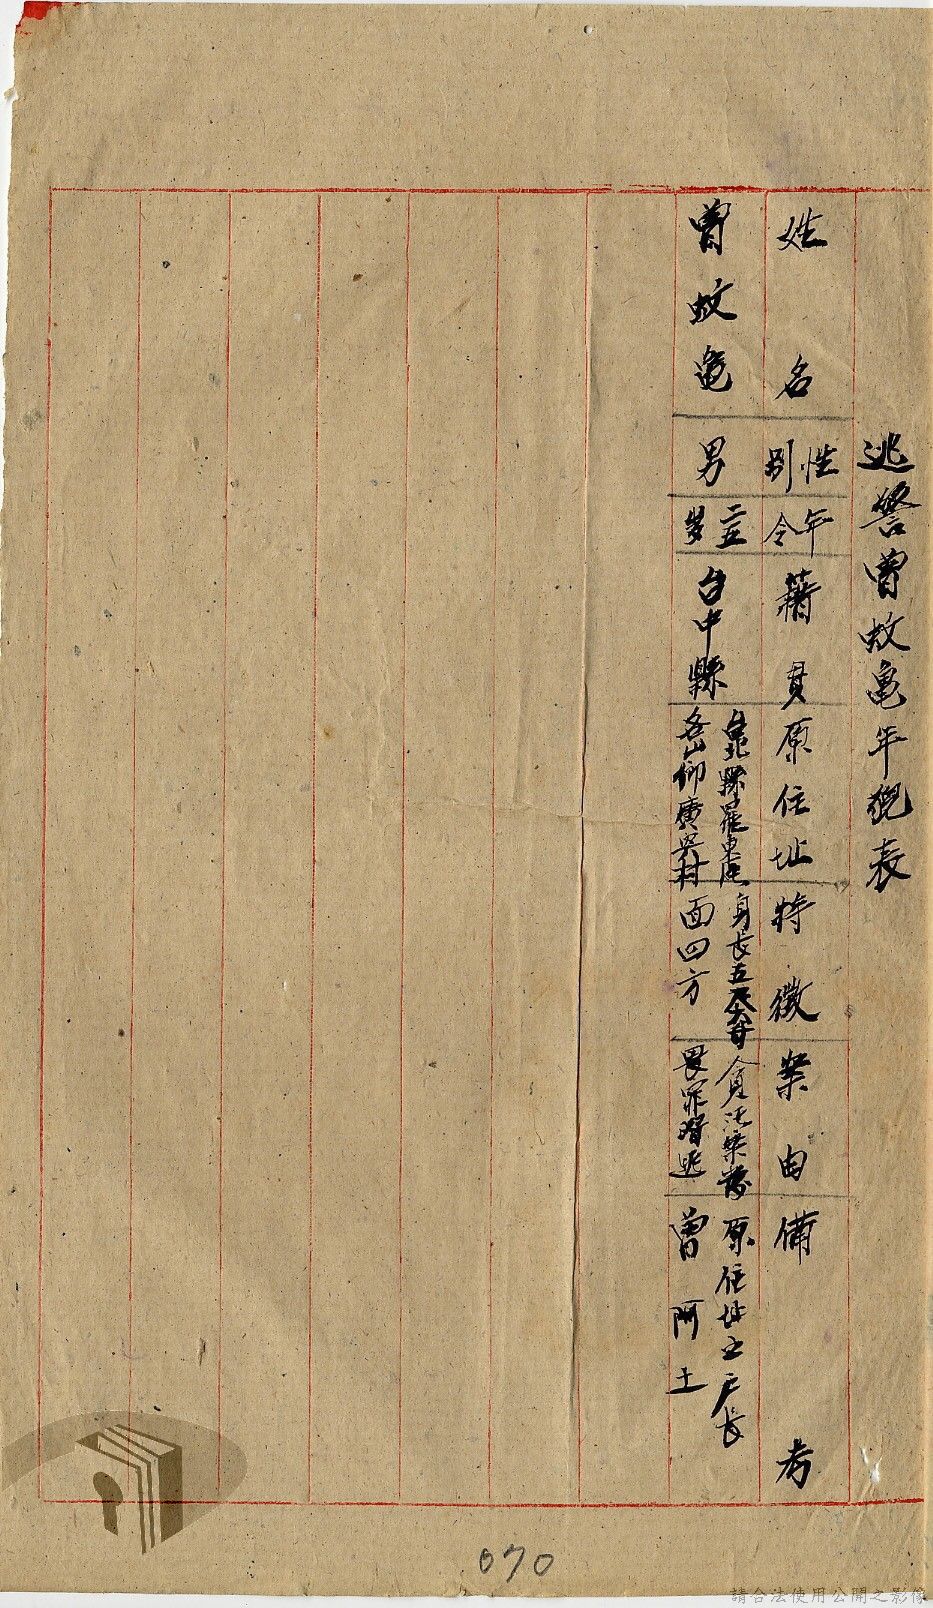 逃警曾蚊亀年貌表
姓名
性別
年令
籍貫
原住址
特徵
案由
備考
曾蚊亀
男
二五岁
台中縣
台北縣羅東區
冬山鄉廣興村
身長五尺
面四方
貪污案發
畏罪潛逃
原住址之戶長
曾阿土
070
請合法使用公開之影像